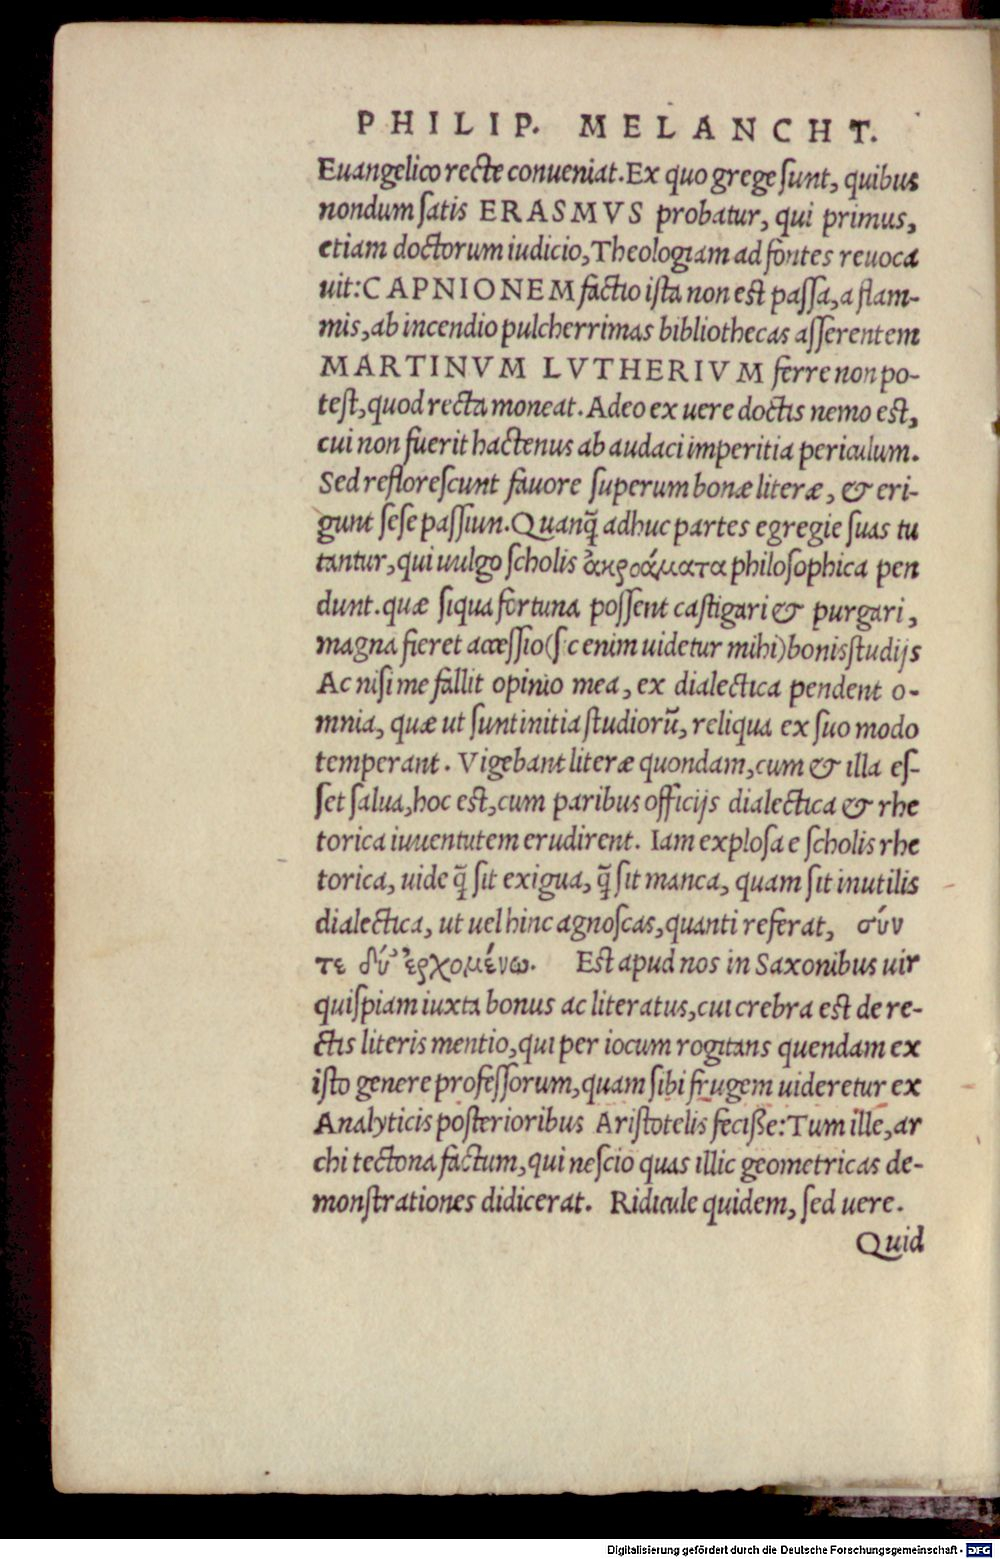 PHILIP. MELANCHT.
Euangelico recte conueniat. Ex quo grege sunt, quibus
nondum satis ERASMVS probatur, qui primus,
etiam doctorum iudicio, Theologiam ad fontes reuoca
uit: CAPNIONEM factio ista non est passa, a flam-
mis, ab incendio pulcherrimas bibliothecas asserentem
MARTINVM LVTHERIVM ferre non po-
test, quod recta moneat. Adeo ex uere doctis nemo est,
cui non fuerit hactenus ab audaci imperitia periculum.
Sed reflorescunt fauore superum bonæ literæ, & eri-
gunt sese passiun. Quanq̃ adhuc partes egregie suas tu
tantur, qui uulgo scholis ἀκροάματα philosophica pen
dunt. quæ siqua fortuna possent castigari & purgari,
magna fieret accessio (s c enim uidetur mihi) bonis studijs
Ac nisi me fallit opinio mea, ex dialectica pendent o-
mnia, quæ ut sunt initia studiorũ, reliqua ex suo modo
temperant. Vigebant literæ quondam, cum & illa es-
set salua, hoc est, cum paribus officijs dialectica & rhe
torica iuuentutem erudirent. Iam explosa e scholis rhe
torica, uide q̃ sit exigua, q̃ sit manca, quam sit inutilis
dialectica, ut uel hinc agnoscas, quanti referat, σύν
τε δύ᾽ ἐρχομένω. Est apud nos in Saxonibus uir
quispiam iuxta bonus ac literatus, cui crebra est de re-
ctis literis mentio, qui per iocum rogitans quendam ex
isto genere professorum, quam sibi frugem uideretur ex
Analyticis posterioribus Aristotelis feciße: Tum ille, ar
chi tectona factum, qui nescio quas illic geometricas de-
monstrationes didicerat. Ridicule quidem, sed uere.
Quid
Digitalisierung gefördert durch die Deutsche Forschungsgemeinschaft - DFG